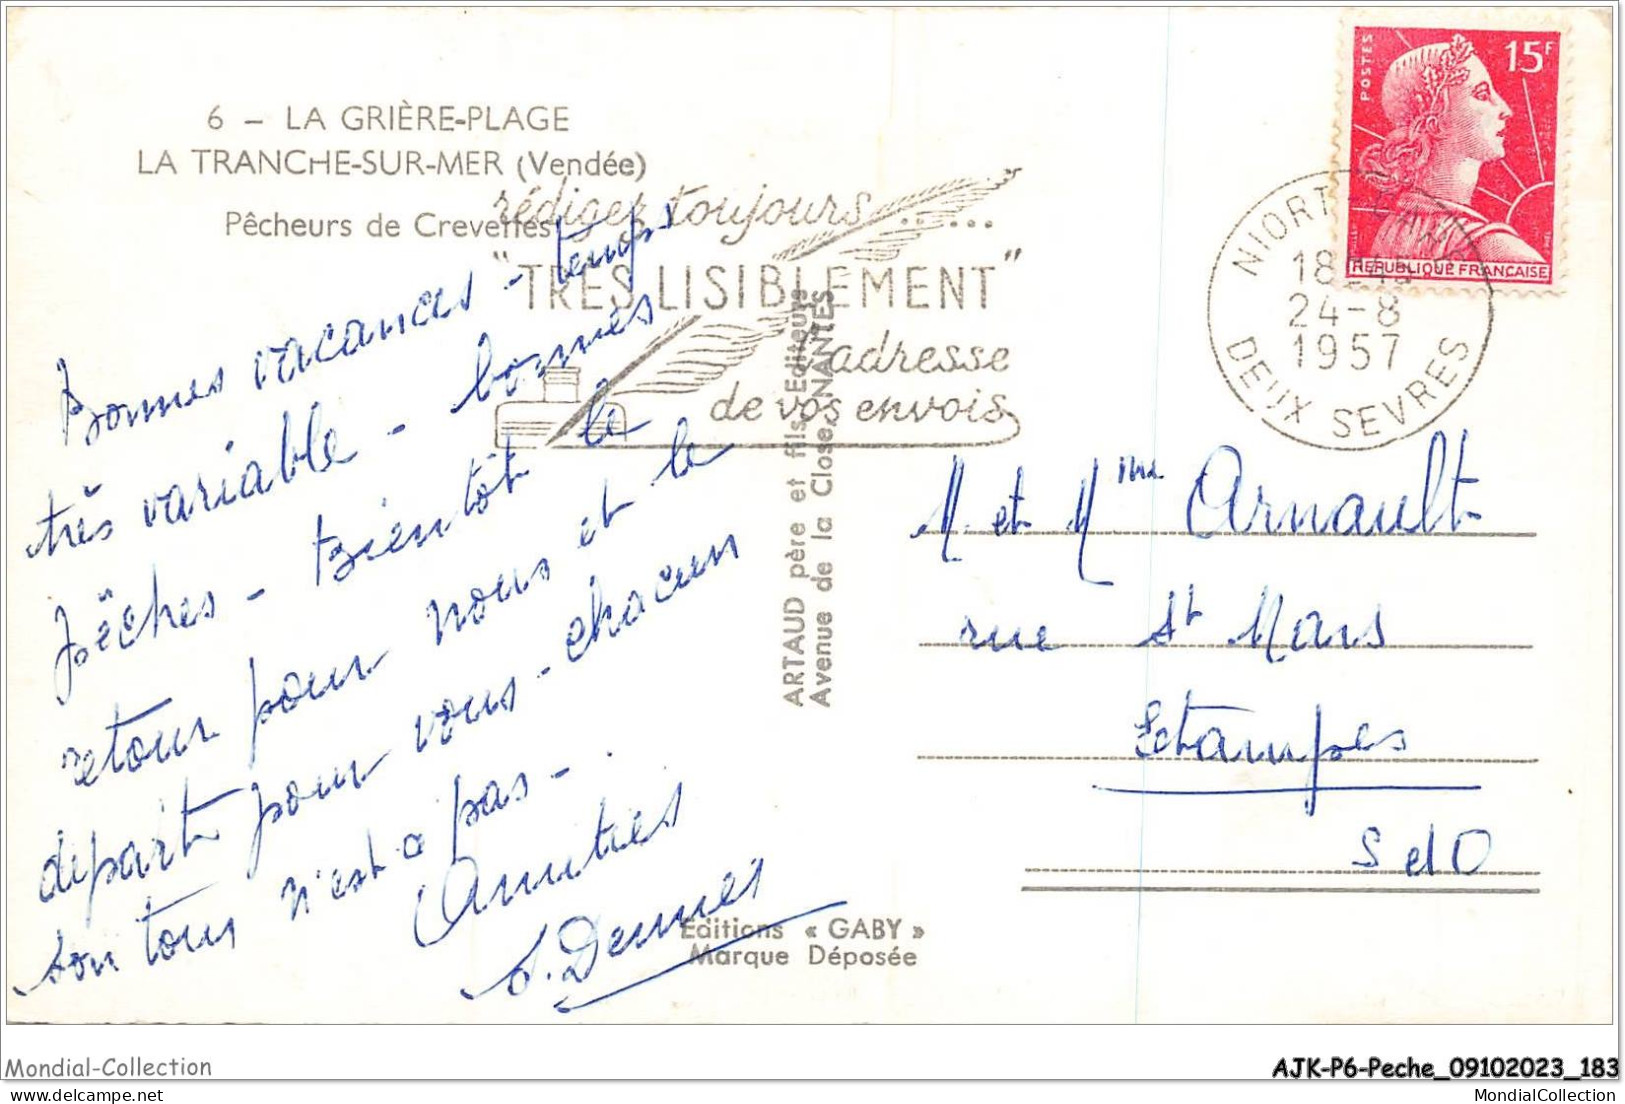 6 – LA GRIÈRE-PLAGE
LA TRANCHE-SUR-MER (Vendée)
Pêcheurs de Crevettes
rédigez toujours......
"TRES LISIBLEMENT"
l'adresse
de vos envois
POSTES
15F
REPUBLIQUE FRANÇAISE
NIORT GARE
18H15
24-8
1957
DEUX SEVRES
Bonnes vacances - temps
très variable - bonnes
pêches - Bientôt le
retour pour nous et le
départ pour vous - chacun
son tour n'est-ce pas -
Amitiés
ARTAUD père et fils, Editeurs
Avenue de la Close, NANTES
M. et Mme Arnault
rue St Mars
Etampes
S et O
Editions « GABY »
Marque Déposée
Mondial-Collection
AJK-P6-Peche_09102023_183
MondialCollection